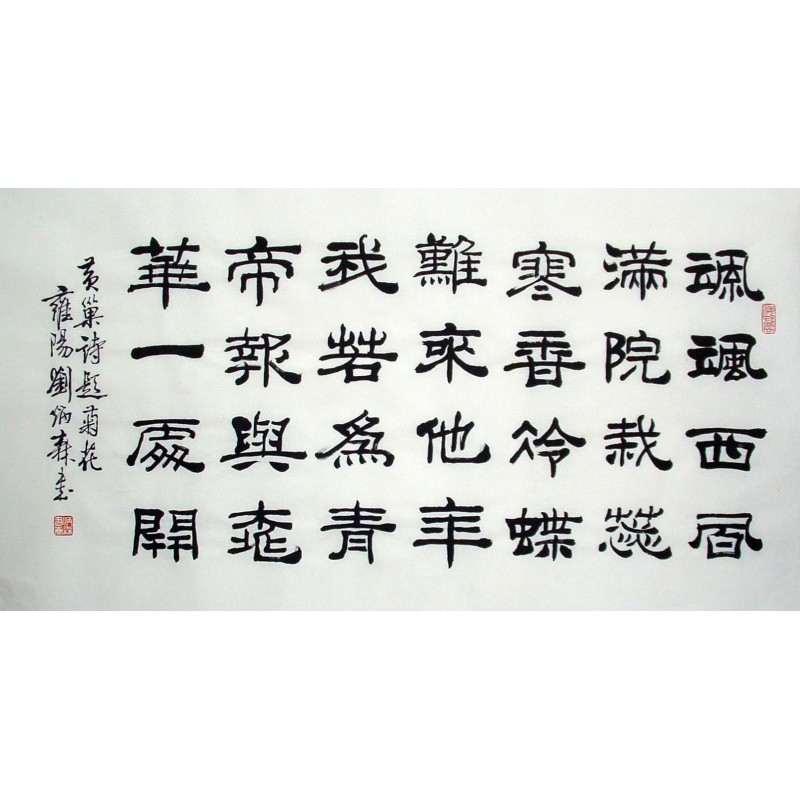 颯颯西風
滿院栽蕊
寒香冷蝶
難來他年
我若為青
帝報與桃
華一處開
黄巢詩題菊花
雍陽劉炳森書